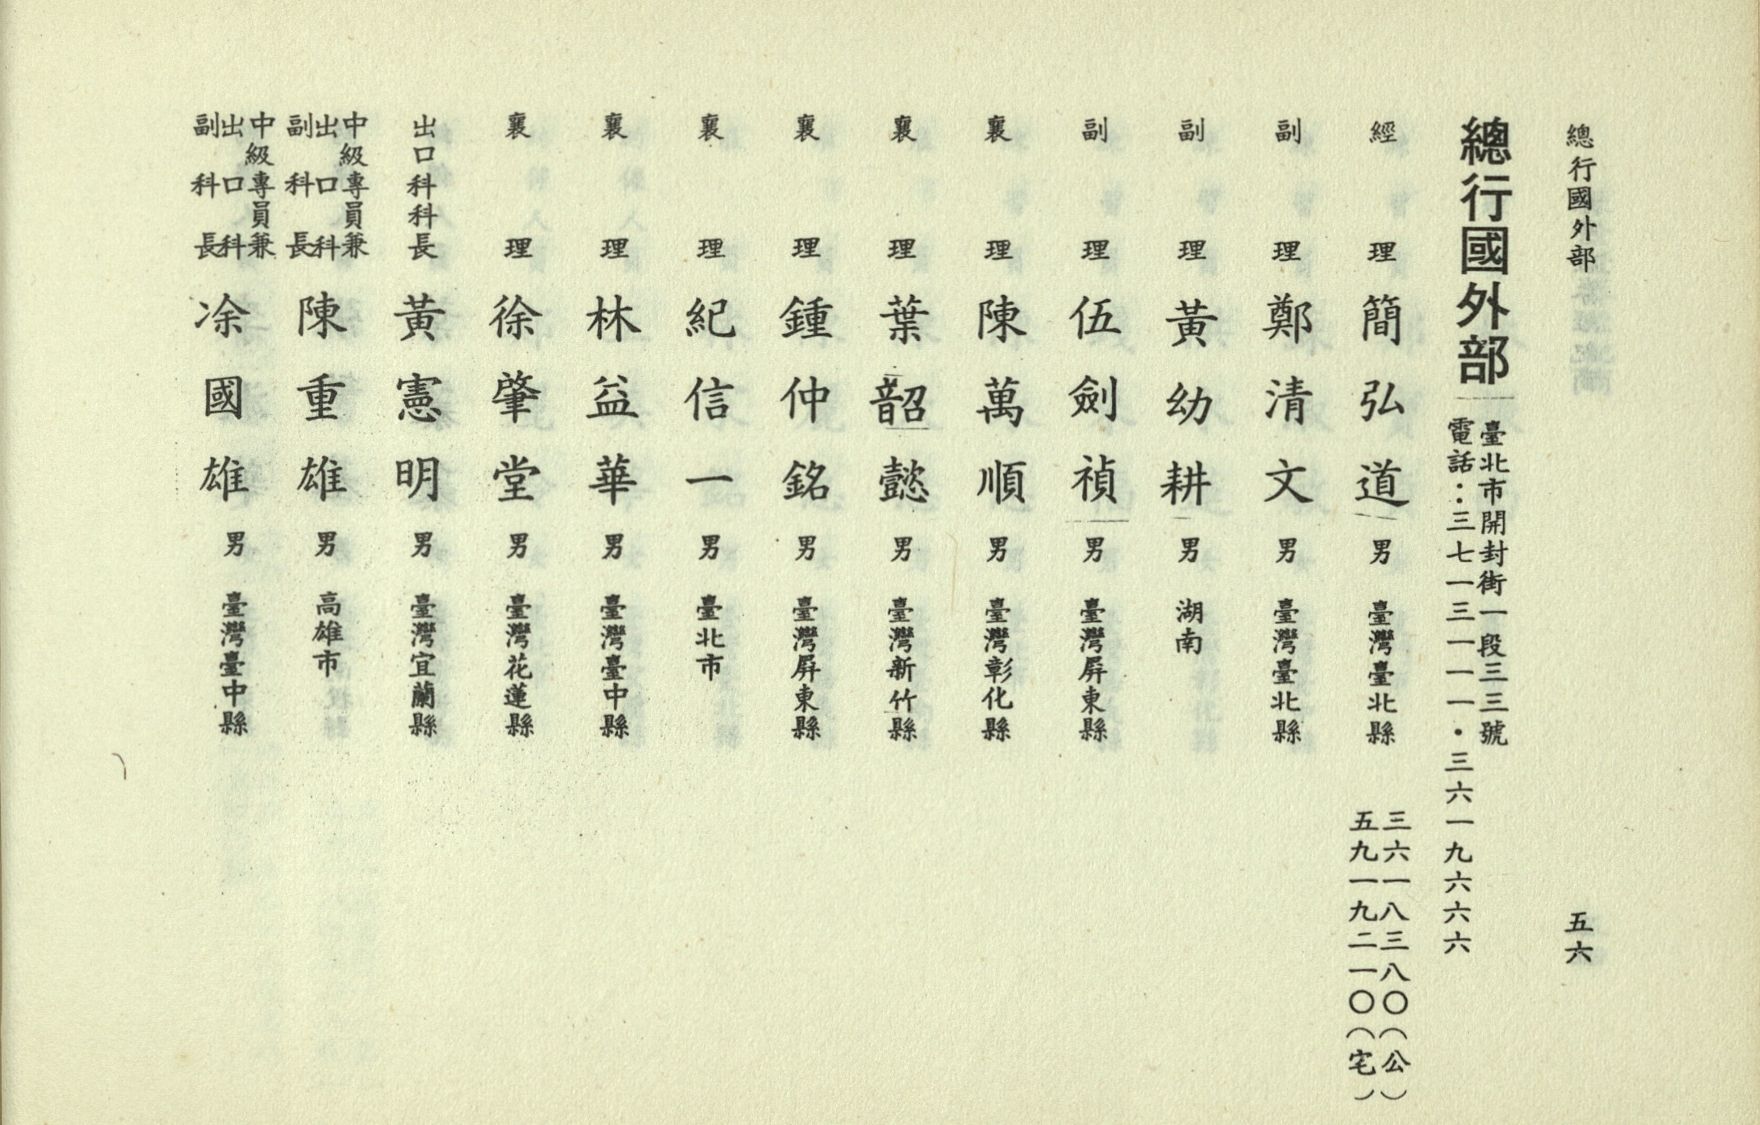 總行國外部 五六
總行國外部
臺北市開封街一段三三號
電話：三七一三一一一・三六一九六六六
經理 簡弘道 男 臺灣臺北縣 三六一八三八〇（公）
五九一九二一〇（宅）
副理 鄭清文 男 臺灣臺北縣
副理 黃幼耕 男 湖南
副理 伍劍禎 男 臺灣屏東縣
襄理 陳萬順 男 臺灣彰化縣
襄理 葉韶懿 男 臺灣新竹縣
襄理 鍾仲銘 男 臺灣屏東縣
襄理 紀信一 男 臺北市
襄理 林益華 男 臺灣臺中縣
襄理 徐肇堂 男 臺灣花蓮縣
出口科科長 黃憲明 男 臺灣宜蘭縣
中級專員兼出口科副科長 陳重雄 男 高雄市
中級專員兼出口科副科長 凃國雄 男 臺灣臺中縣